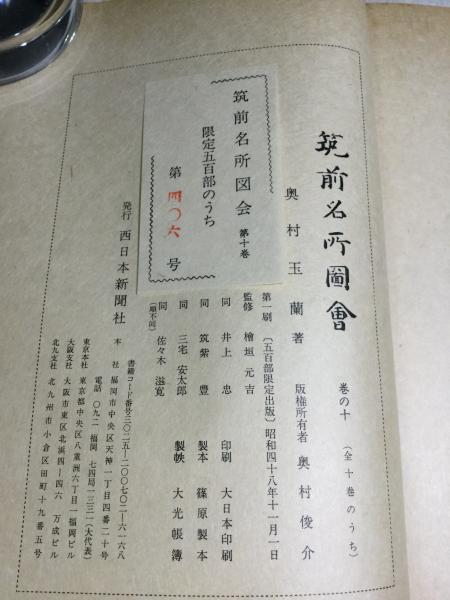 筑前名所圖會 巻の十 (全十巻のうち)
奥村玉蘭著 版権所有者 奥村俊介
第一刷 〔五百部限定出版〕 昭和四十八年十一月一日
監修 檜垣元吉
同 井上 忠 印刷 大日本印刷
同 筑紫 豊 製本 篠原製本
同 三宅安太郎 製帙 大光帳簿
同 佐々木滋寛
(順不同)
筑前名所図会 第十巻
限定五百部のうち
第 四〇六 号
発行 西日本新聞社
書籍コード番号三〇二五―二〇〇七〇二―六一六八
本社 福岡市中央区天神一丁目四番二十号
電話 〇九二 福岡 七四局一三三一(大代表)
東京本社 東京都中央区八重洲六丁目一福岡ビル
大阪支社 大阪市東区北浜四―四六 万成ビル
北九支社 北九州市小倉区田町十九番五号